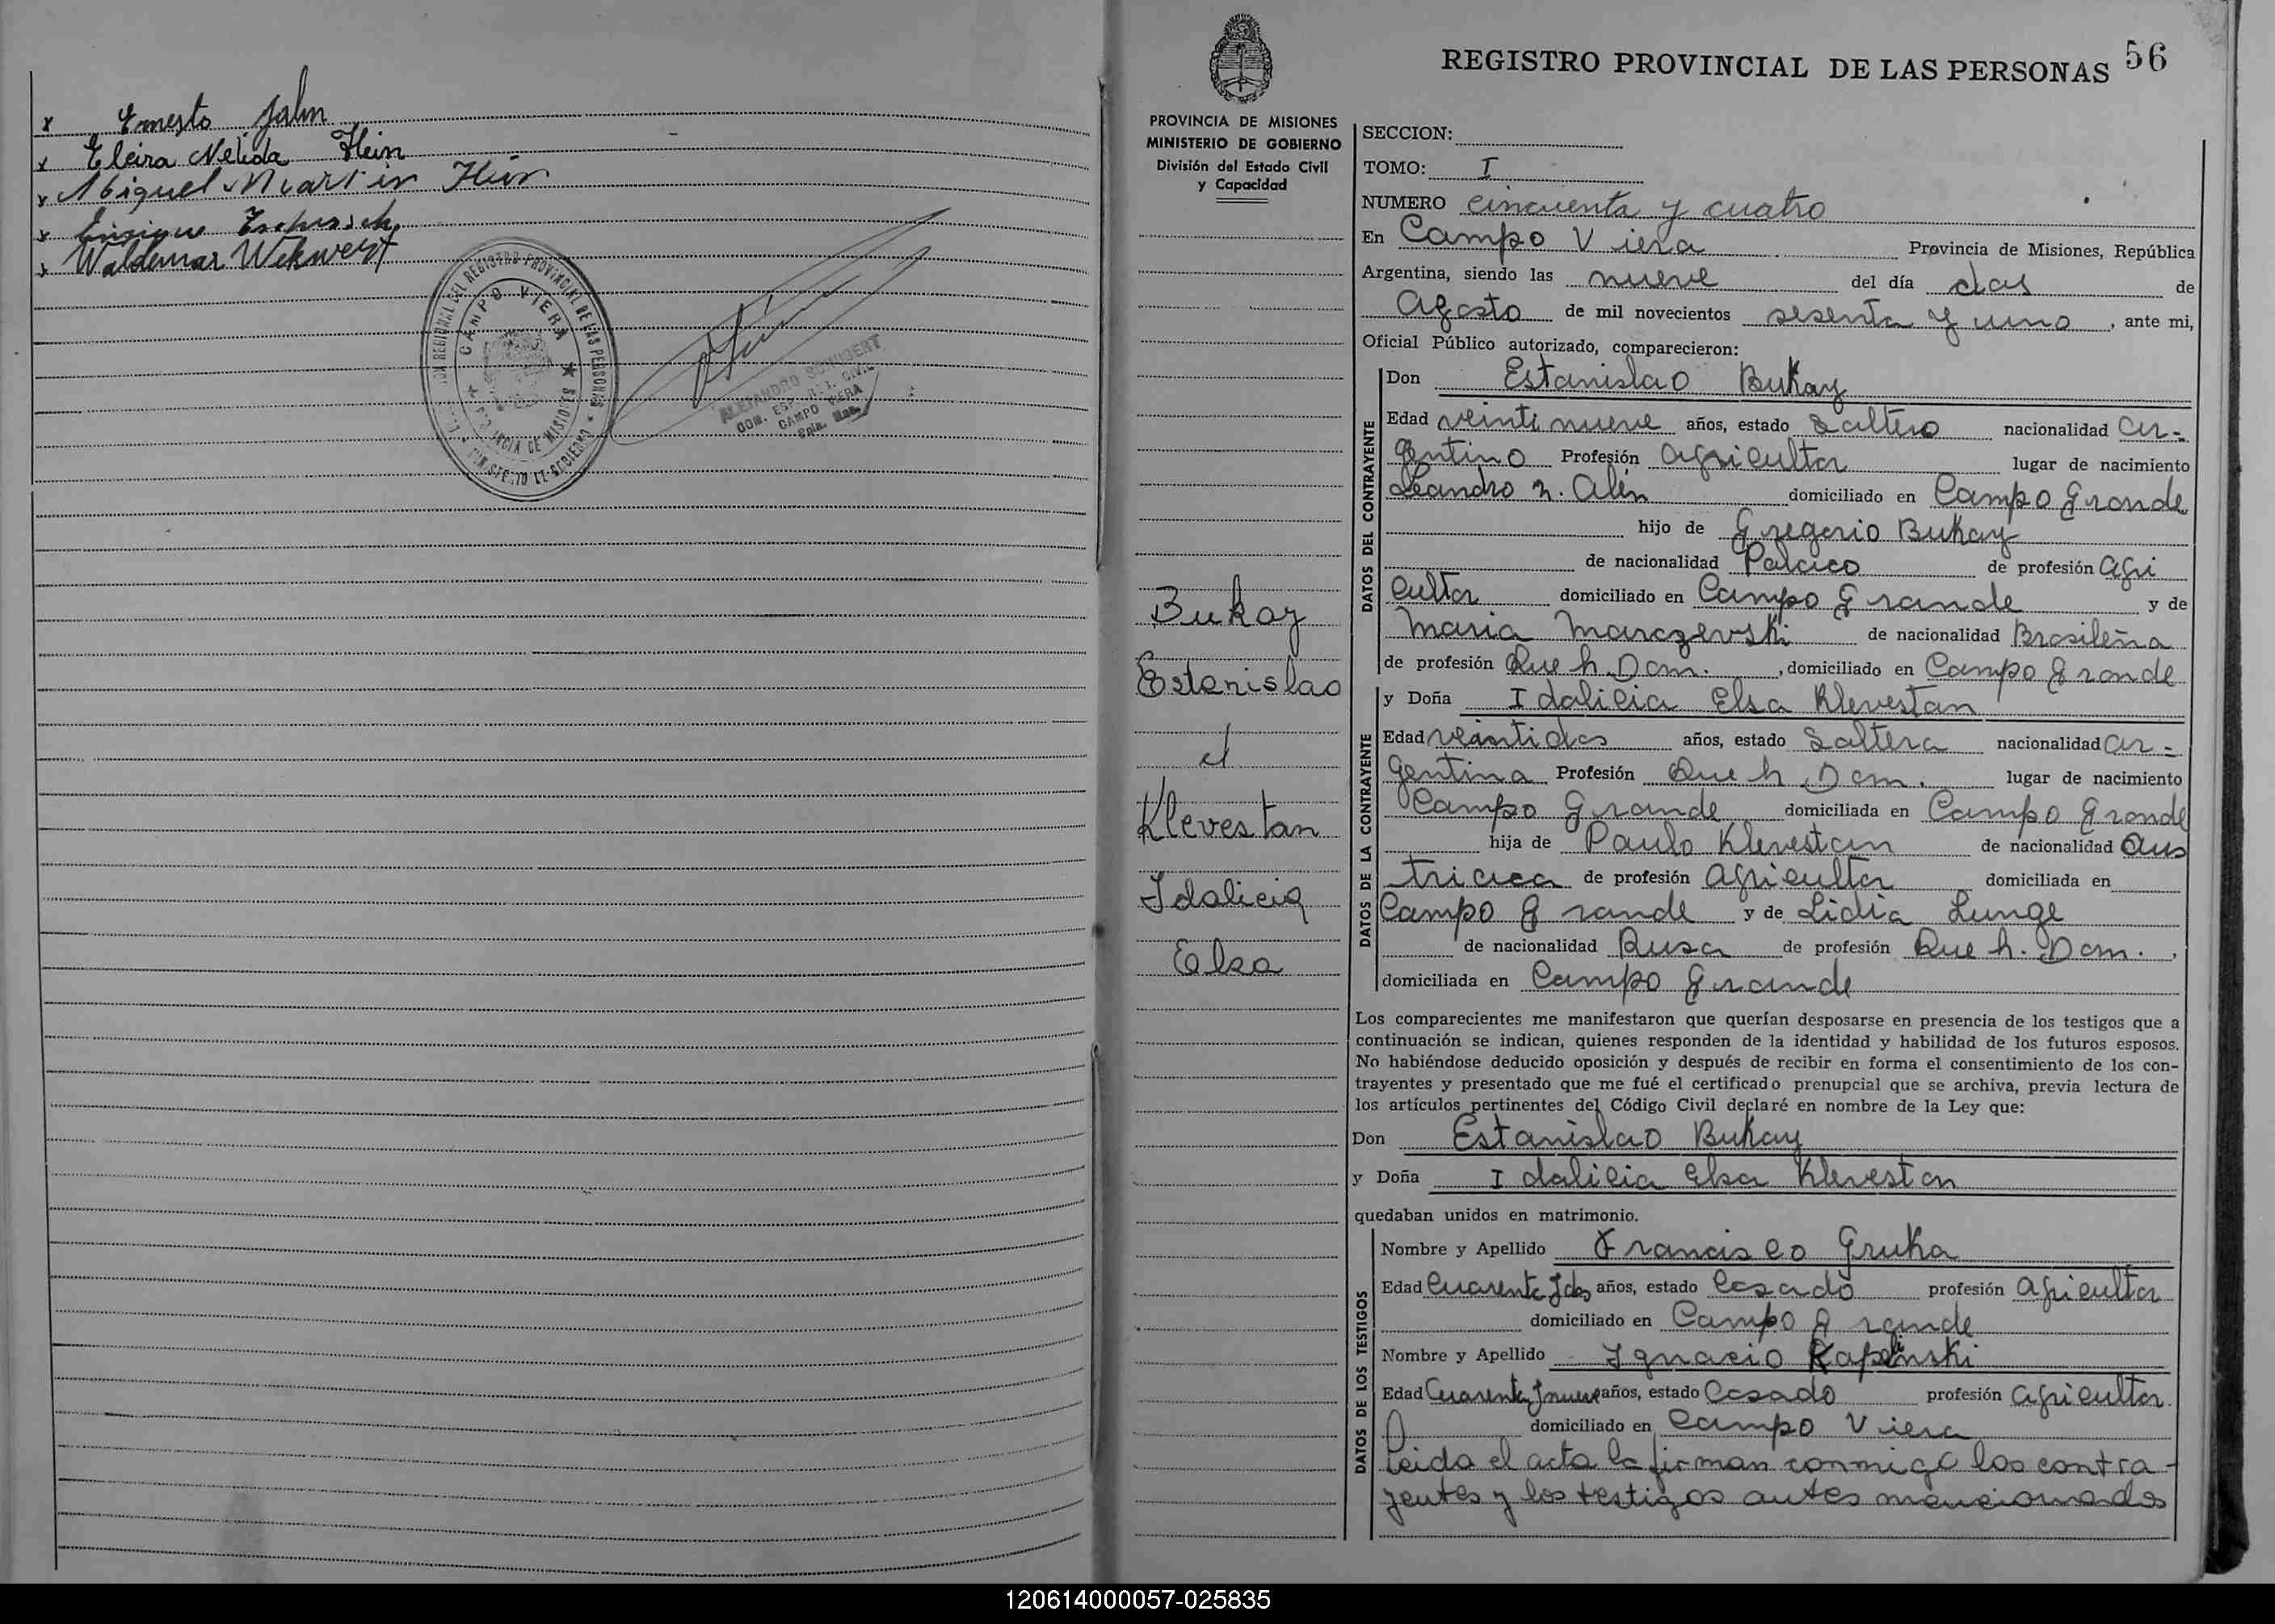 x Ernesto Jahn
x Eleira Nelida Hein
x Miguel Martin Hein
x Enrique
x Waldemar Wekwert
CAMPO VIERA
PROVINCIA DE MISIONES
ALEJANDRO SCHUBERT
CAMPO VIERA
REGISTRO PROVINCIAL DE LAS PERSONAS 56
PROVINCIA DE MISIONES
MINISTERIO DE GOBIERNO
División del Estado Civil
y Capacidad
Bukay
Estanislao
Klevestan
Idalicia
Elsa
SECCION:
TOMO: I
NUMERO cincuenta y cuatro
En Campo Viera Provincia de Misiones, República
Argentina, siendo las nueve del día dos de
Agosto de mil novecientos sesenta y uno, ante mi,
Oficial Público autorizado, comparecieron:
DATOS DEL CONTRAYENTE
Don Estanislao Bukay
Edad veinti nueve años, estado Soltero nacionalidad Ar-
gentino Profesión agricultor lugar de nacimiento
Leandro N. Alén domiciliado en Campo Grande
hijo de Gregorio Bukay
de nacionalidad Polaco de profesión Agri
cultor domiciliado en Campo Grande y de
Maria Marczevski de nacionalidad Brasileña
de profesión Que h. Dom., domiciliado en Campo Grande
DATOS DE LA CONTRAYENTE
y Doña Idalicia Elsa Klevestan
Edad veintidos años, estado Soltera nacionalidad Ar-
gentina Profesión Que h. Dom. lugar de nacimiento
Campo Grande domiciliada en Campo Grande
hija de Paulo Klevestan de nacionalidad Aus
triaca de profesión Agricultor domiciliada en
Campo Grande y de Lidia Lunge
de nacionalidad Rusa de profesión Que h. Dom.,
domiciliada en Campo Grande
Los comparecientes me manifestaron que querían desposarse en presencia de los testigos que a
continuación se indican, quienes responden de la identidad y habilidad de los futuros esposos.
No habiéndose deducido oposición y después de recibir en forma el consentimiento de los con-
trayentes y presentado que me fué el certificado prenupcial que se archiva, previa lectura de
los artículos pertinentes del Código Civil declaré en nombre de la Ley que:
Don Estanislao Bukay
y Doña Idalicia Elsa Klevestan
quedaban unidos en matrimonio.
DATOS DE LOS TESTIGOS
Nombre y Apellido Francisco Gruka
Edad Cuarenta y dos años, estado Casado profesión agricultor
domiciliado en Campo Grande
Nombre y Apellido Ignacio Kapelinski
Edad Cuarenta y nueve años, estado Casado profesión agricultor
domiciliado en Campo Viera
Leida el acta la firman conmigo los contra-
yentes y los testigos antes mencionados
120614000057-025835